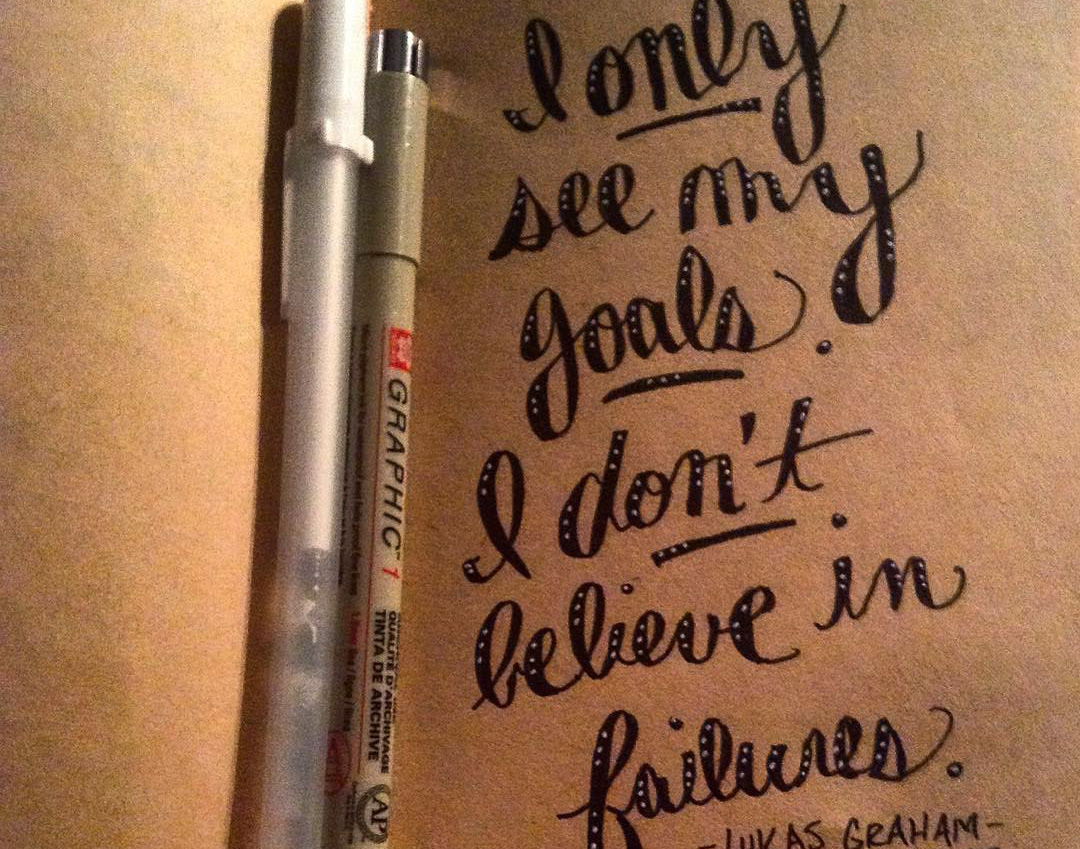 I only
see my
goals.
I don't
believe in
failures.
-LUKAS GRAHAM-
GRAPHIC™ 1
QUALITÉ D'ARCHIVAGE
TINTA DE ARCHIVE
AP